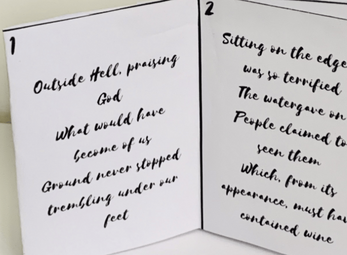 1
Outside Hell, praising
God
What would have
become of us
Ground never stopped
trembling under our
feet
2
Sitting on the edge
was so terrified
The watergave on
People claimed to
seen them
Which, from its
appearance, must
contained wine